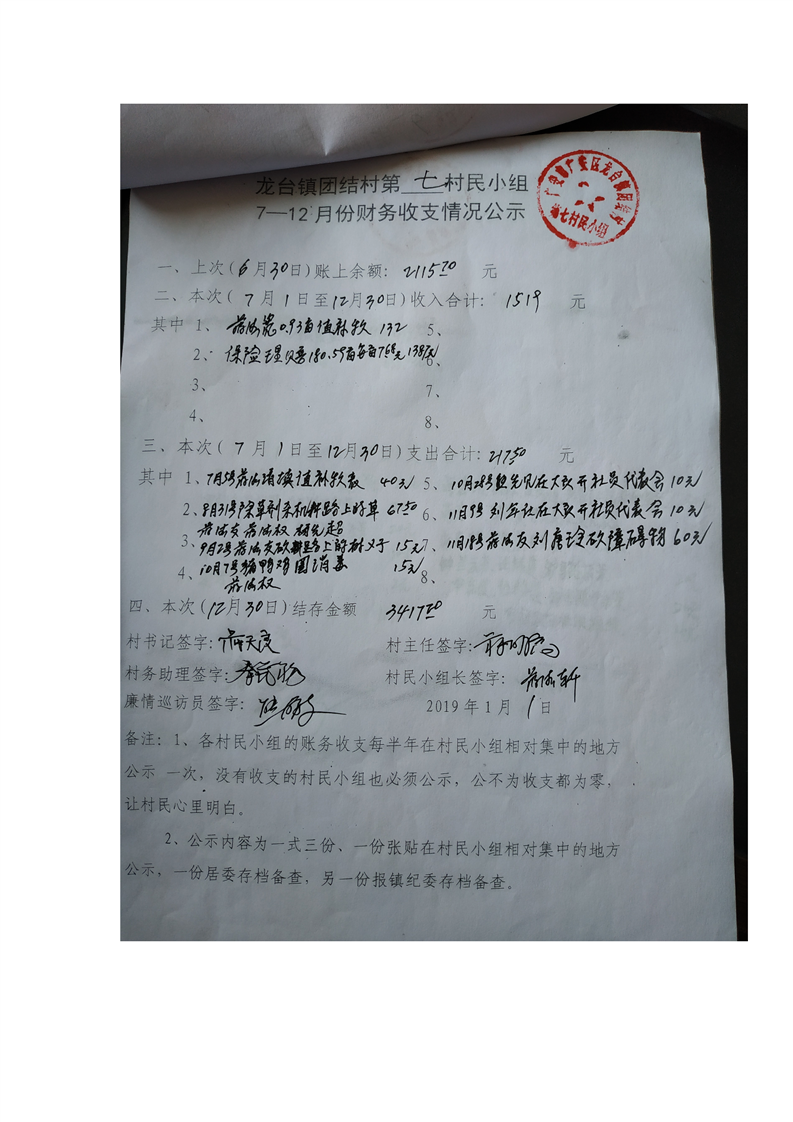 龙台镇团结村第七村民小组
7—12月份财务收支情况公示
第七村民小组
一、上次(6月30日)账上余额: 2115.70 元
二、本次( 7月1日至12月30日)收入合计: 1519 元
其中 1、 0.93亩值补款 132 5、
2、保险理赔180.59亩每亩7.68元1387元 6、
3、 7、
4、 8、
三、本次( 7月1日至12月30日)支出合计: 217.50 元
其中 1、7月5号 填值补款表 40元 5、10月28号 在大队开社员代表会10元
2、8月31号除草剂杀机耕路上的草 67.50 6、11月9号刘 在大队开社员代表会10元
3、9月2号 砍耕路上的树丫于 15元 7、11月18号 砍障碍物 60元
4、10月7号 鸭鸡圈消毒 15元 8、
四、本次(12月30日)结存金额 3417.20 元
村书记签字: 村主任签字:
村务助理签字: 村民小组长签字:
廉情巡访员签字: 2019年1月1日
备注:1、各村民小组的账务收支每半年在村民小组相对集中的地方
公示 一次,没有收支的村民小组也必须公示,公不为收支都为零,
让村民心里明白。
2、公示内容为一式三份、一份张贴在村民小组相对集中的地方
公示,一份居委存档备查,另一份报镇纪委存档备查。